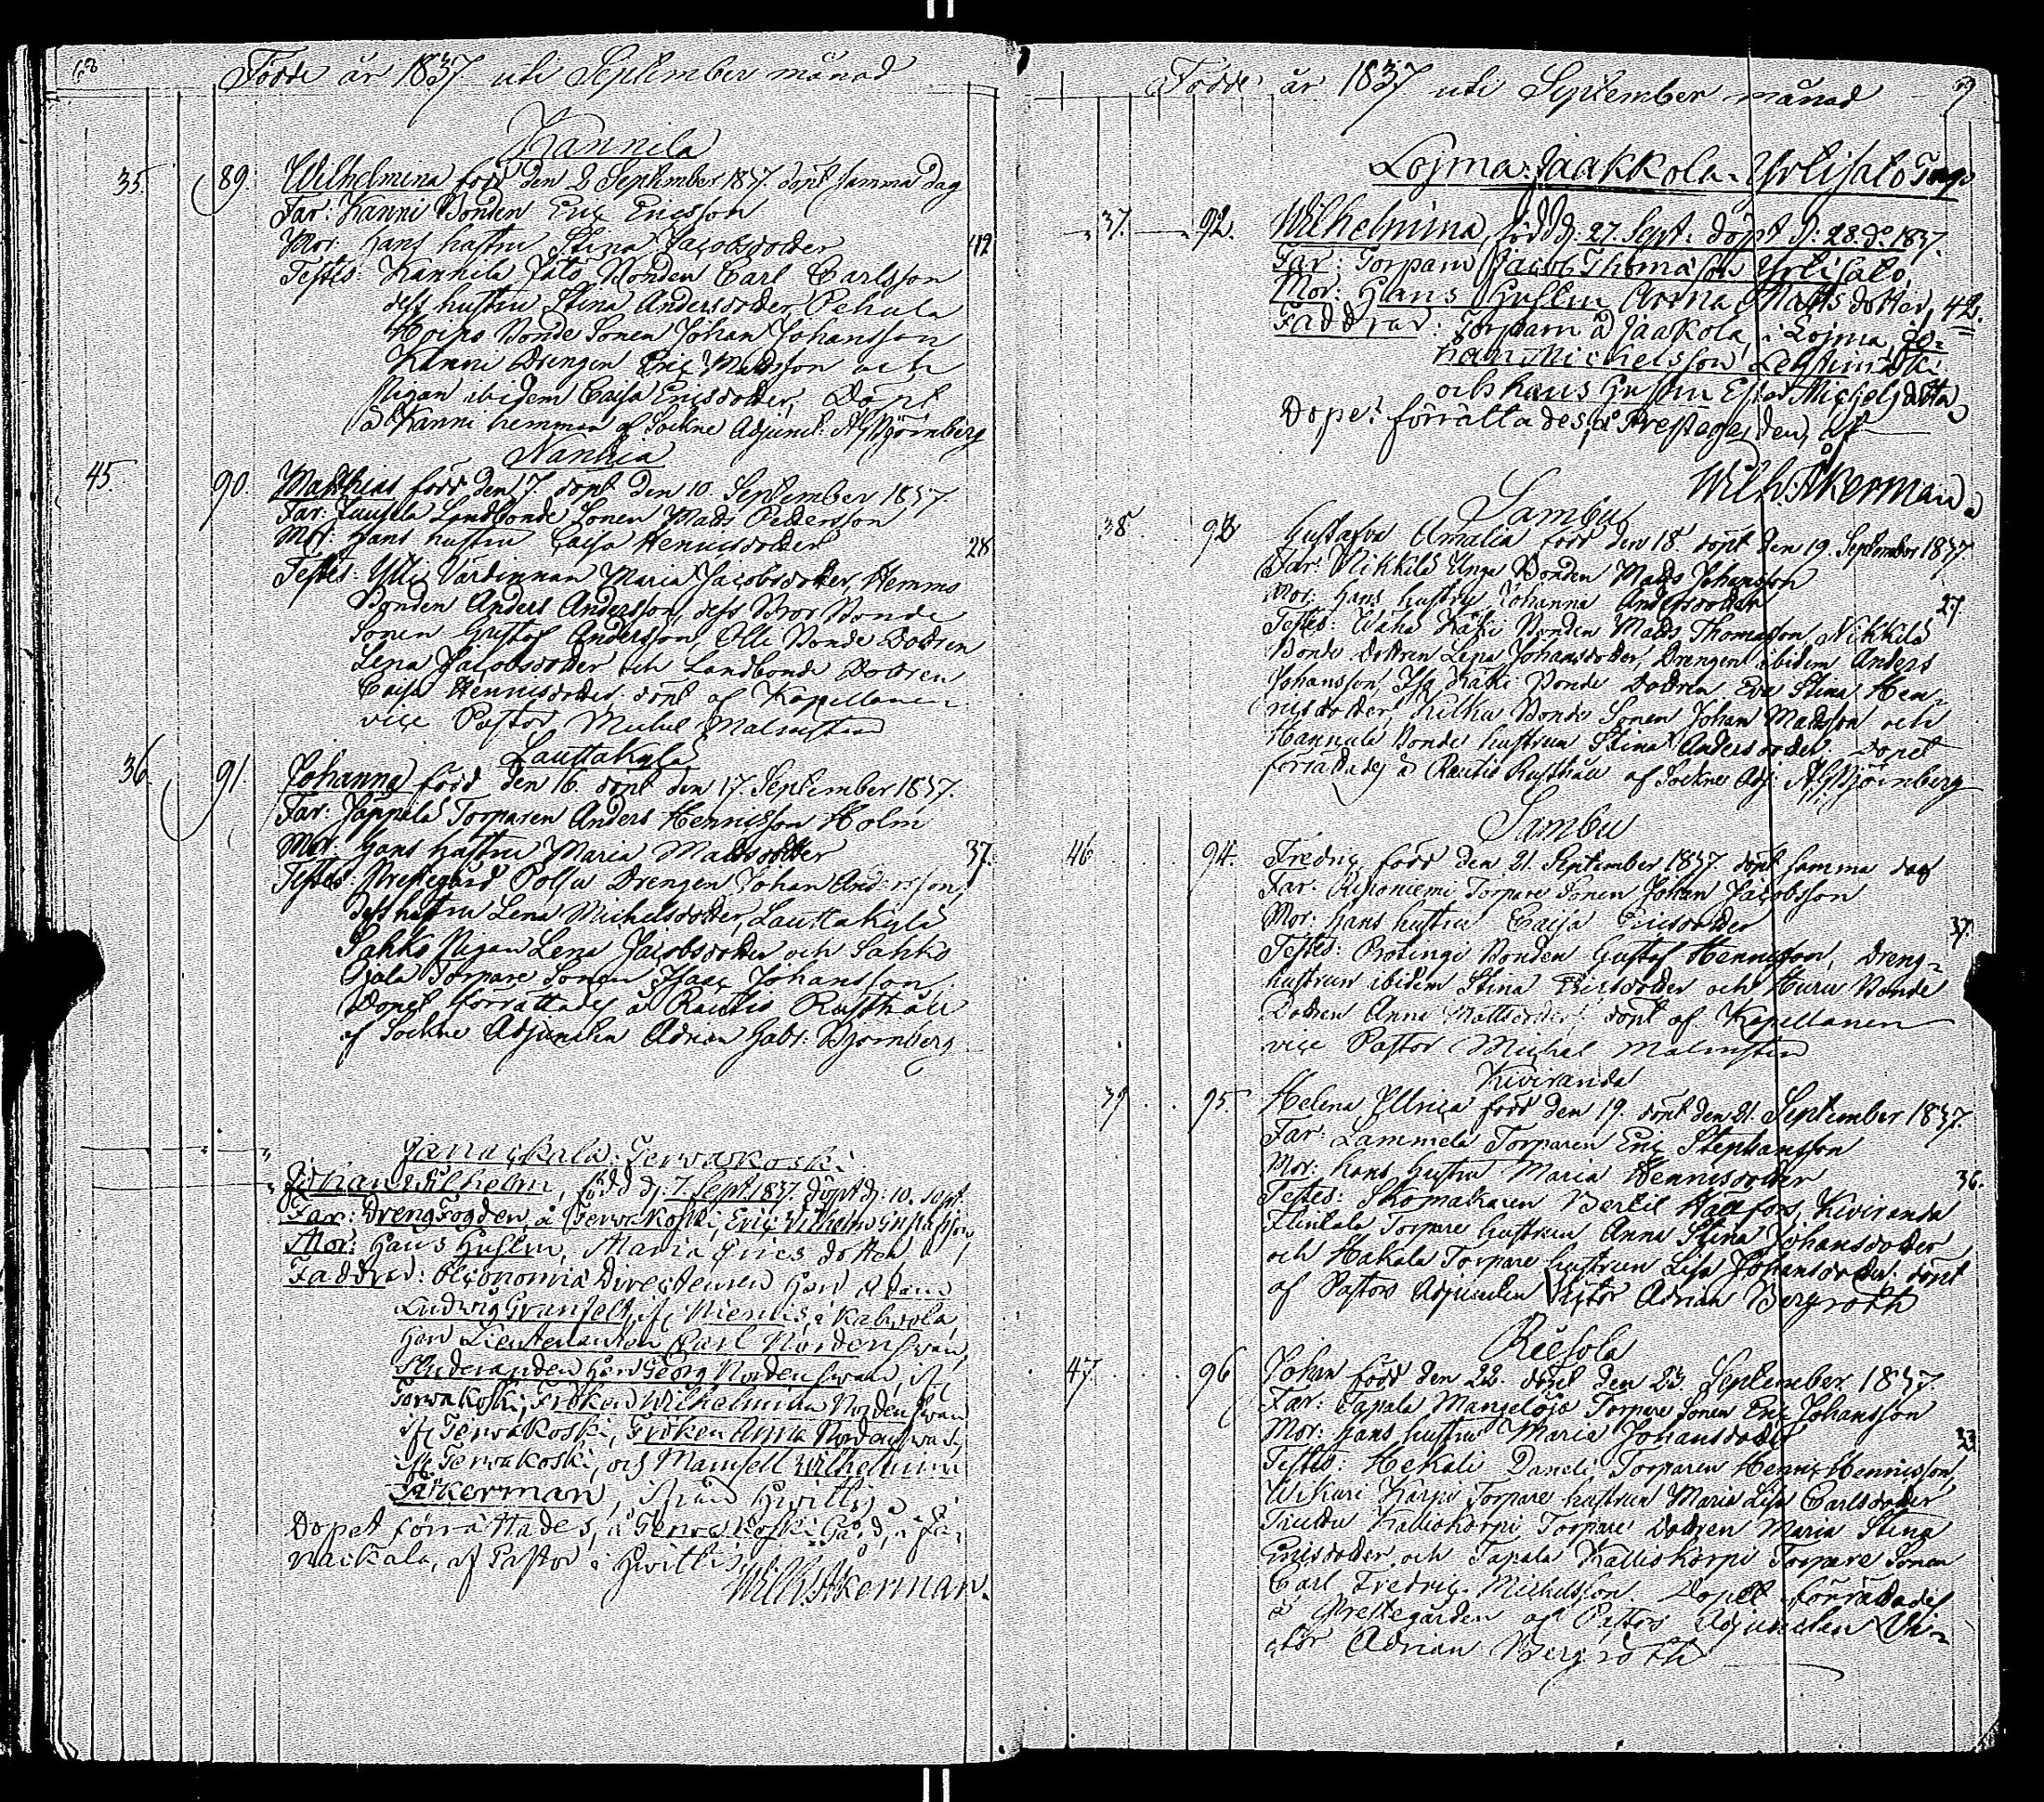 68
Födde år 1837 uti September månad
Kannila
35. 89. Wilhelmina född den 2 September 1837. döpt samma dag
Far: Kanni Bonden Eric Ericsson
Mor: hans hustru Stina Jacobsdotter 42
Testes: Kannila Jätö Bonden Carl Carlsson
dess hustru Stina Andersdotter, Pehula
Bonde Sonen Johan Johansson
Kanni Drengen Eric Mattsson och
Pigan ibidem Caisa Ericsdotter, Döpt
å Kanni hemman af Sockne Adjunct: AGBjörnberg
45. 90. Matthias född den 7. döpt den 10. September 1837
Far: Landbonde Sonen Matts Pettersson
Mor: hans hustru Caisa Henricsdotter 28
Testes: Ylli Värdinnan Maria Jacobsdotter, Hemmo
Bonden Anders Andersson, dess Bror Bonde
Sonen Gustof Andersson, Olli Bonde Dottren
Lena Jacobsdotter och Landbonde Dottren
Caisa Henricsdotter, döpt af Kapellanen
vice Pastor Michel Malmsten
Lauttakylä
36. 91 Johanna född den 16. döpt den 17. September 1837.
Far: Jappala Torparen Anders Henricsson Holm
Mor: hans hustru Maria Mattsdotter 37.
Testes: Prestegård Drengen Johan Andersson,
dess hustru Lena Michelsdotter, Lauttakylä
Sahko Pigan Lena Jacobsdotter och Sahko
Ojala Torpare Sonen Isaac Johansson.
Dopet förrättades å Rautio Rusthåll
af Sockne Adjuncten Adrian Gabr: Björnberg
Janackala: Terwakoski
Johan Wilhelm, född d. 7. Sept. 1837. döpt d: 10. Sept.
Far: DrengFogden, å Terwakoski, Eric Wilhelm Gustafsson,
Mor: Hans Hustru, Maria Erics dotter,
Faddrar: Oeconomiæ Directeuren Herr Adam
Ludwig Granfelt, if. Niemis, i Kalwola,
Herr Lieutenanten Carl Nordenswan,
Studeranden Herr Georg Nordenswan, if.
Terwakoski, Fröken Wilhelmina Nordenswan
if. Terwakoski, Fröken Anna Nordenswan,
if. Terwakoski, och Mamsell Wilhelmina
Åkerman, ifrån Hwittis.
Dopet förrättades, å Terwakoski Gård, i Ja-
nackala, af Pastor i Hwittis,
Wilh: Åkerman.
69
Födde år 1837 uti September månad
Lojma: Jaakkola. Yrlisalo Torp
37. 92. Wilhelmina, född d: 27. Sept: döpt d: 28. do 1837.
Far: Torparn Jacob Thomasson Yrlisalo,
Mor: Hans Hustru Anna Matts dotter, 42.
Faddrar: Torparn å Jaakola, i Lojma, Jo-
han Michelsson
och hans Hustru Ester Michelsdotter
Dopet förrättades, å Prestegården, af
Wilh: Åkerman
Sambu
38. 93 Gustafva Amalia född den 18. döpt den 19. September 1837
Far: Nikkilä Unga Bonden Matts Johansson
Mor: hans hustru Johanna Andersdotter 27.
Testes: Waha Käki Bonden Matts Thomasson, Nikkilä
Bonde Dottren Lena Johansdotter, Drengen ibidem Anders
Johansson, Iso Käki Bonde Dottren Eva Stina Hen-
ricsdotter, Kilkku Bonde Sonen Johan Mattsson och
Hannula Bonde hustrun Stina Andersdotter. Dopet
förrättades å Rautio Rusthåll af Sockne Adj: AGBjörnberg
Sambu
46. 94. Fredric född den 21. September 1837. döpt samma dag
Far: Torpare Sonen Johan Jacobsson
Mor: hans hustru Caisa Ericsdotter 37.
Testes: Bonden Gustof Henricsson, Dreng-
hustrun ibidem Stina Ericsdotter och Huru Bonde
Dottren Anna Mattsdotter. döpt af Kapellanen
vice Pastor Michel Malmsten
Kiviranda
39. 95. Helena Ullrica född den 19. döpt den 21. September 1837.
Far: Lammela Torparen Eric Stephansson
Mor: hans hustru Maria Henricsdotter 36.
Testes: Skomakaren Bertil Hallfors, Kiviranda
Torpare hustrun Anna Stina Johansdotter
och Hakala Torpare hustrun Lisa Johansdotter. döpt
af Pastors Adjuncten Victor Adrian Bergroth
Riesola
47. 96 Johan född den 22. döpt den 23. September 1837.
Far: Tapala Torpare Sonen Eric Johansson
Mor: hans hustru Maria Johansdotter 33
Testes: Hekali Daneli Torparen Henric Henricsson,
Wikari Karpi Torpare hustrun Maria Lisa Carlsdotter
Kalliokorpi Torpare Dottren Maria Stina
Ericsdotter och Tapala Kalliokorpi Torpare Sonen
Carl Fredric Michelsson. Dopet förrättades
å Prestegården af Pastors Adjuncten Vi-
ctor Adrian Bergroth